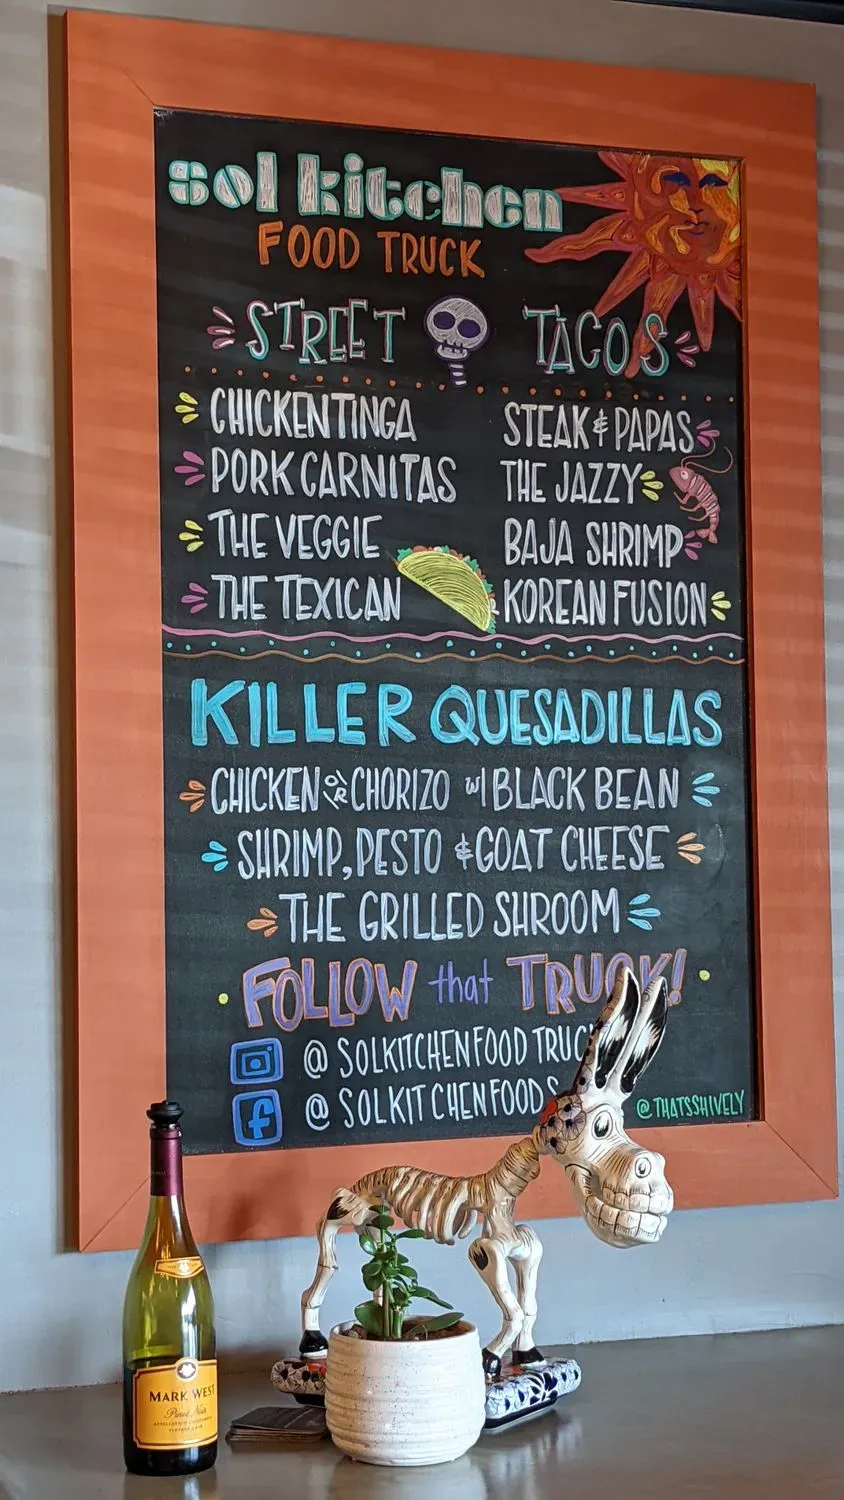 sol kitchen
FOOD TRUCK
STREET TACOS
CHICKEN TINGA
PORK CARNITAS
THE VEGGIE
THE TEXICAN
STEAK & PAPAS
THE JAZZY
BAJA SHRIMP
KOREAN FUSION
KILLER QUESADILLAS
CHICKEN OR CHORIZO w/ BLACK BEAN
SHRIMP, PESTO & GOAT CHEESE
THE GRILLED SHROOM
FOLLOW that TRUCK!
@ SOLKITCHENFOOD TRUC
@ SOLKITCHENFOODS
@THATSSHIVELY
MARK WEST
Pinot Noir